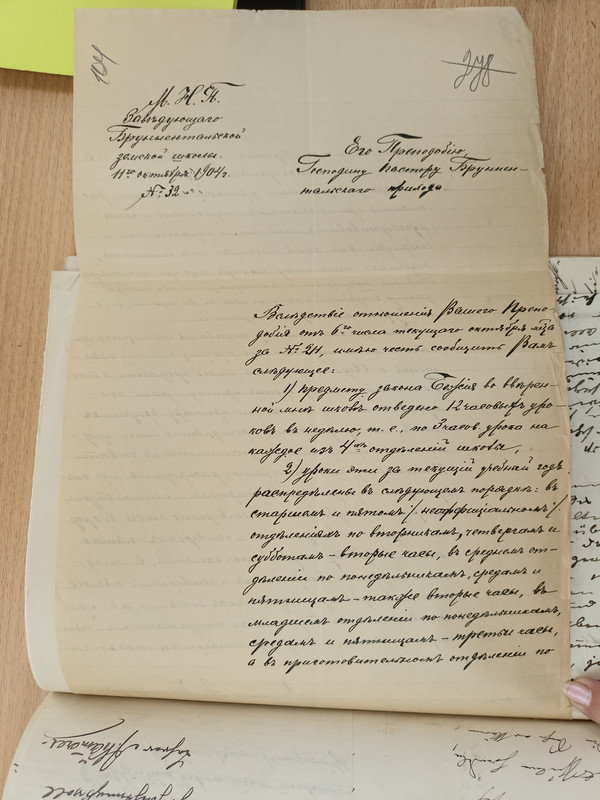 104
278
М. Н. П.
Завѣдующаго
Брунентальской
земской школы.
11го октября 1904 г.
№ 32
Его Преподобію,
Господину Пастору Брунен-
тальскаго прихода.
Вслѣдствіе отношенія Вашего Препо-
добія отъ 6го числа текущаго октября мѣс.
за № 24, имѣю честь сообщить Вамъ
слѣдующее:
1) предмету закона Божія во ввѣрен-
ной мнѣ школѣ отведено 12 часовыхъ уро-
ковъ въ недѣлю, т. е., по 3 часов. урока на
каждое изъ 4хъ отдѣленій школы,
2) уроки эти за текущій учебный годъ
распредѣлены въ слѣдующемъ порядкѣ: въ
старшемъ и пятомъ /неоффиціальномъ/
отдѣленіяхъ по вторникамъ, четвергамъ и
субботамъ – вторые часы, въ среднемъ от-
дѣленіи по понедѣльникамъ, средамъ и
пятницамъ – также вторые часы, въ
младшемъ отдѣленіи по понедѣльникамъ,
средамъ и пятницамъ – третьи часы,
а въ приготовительномъ отдѣленіи по